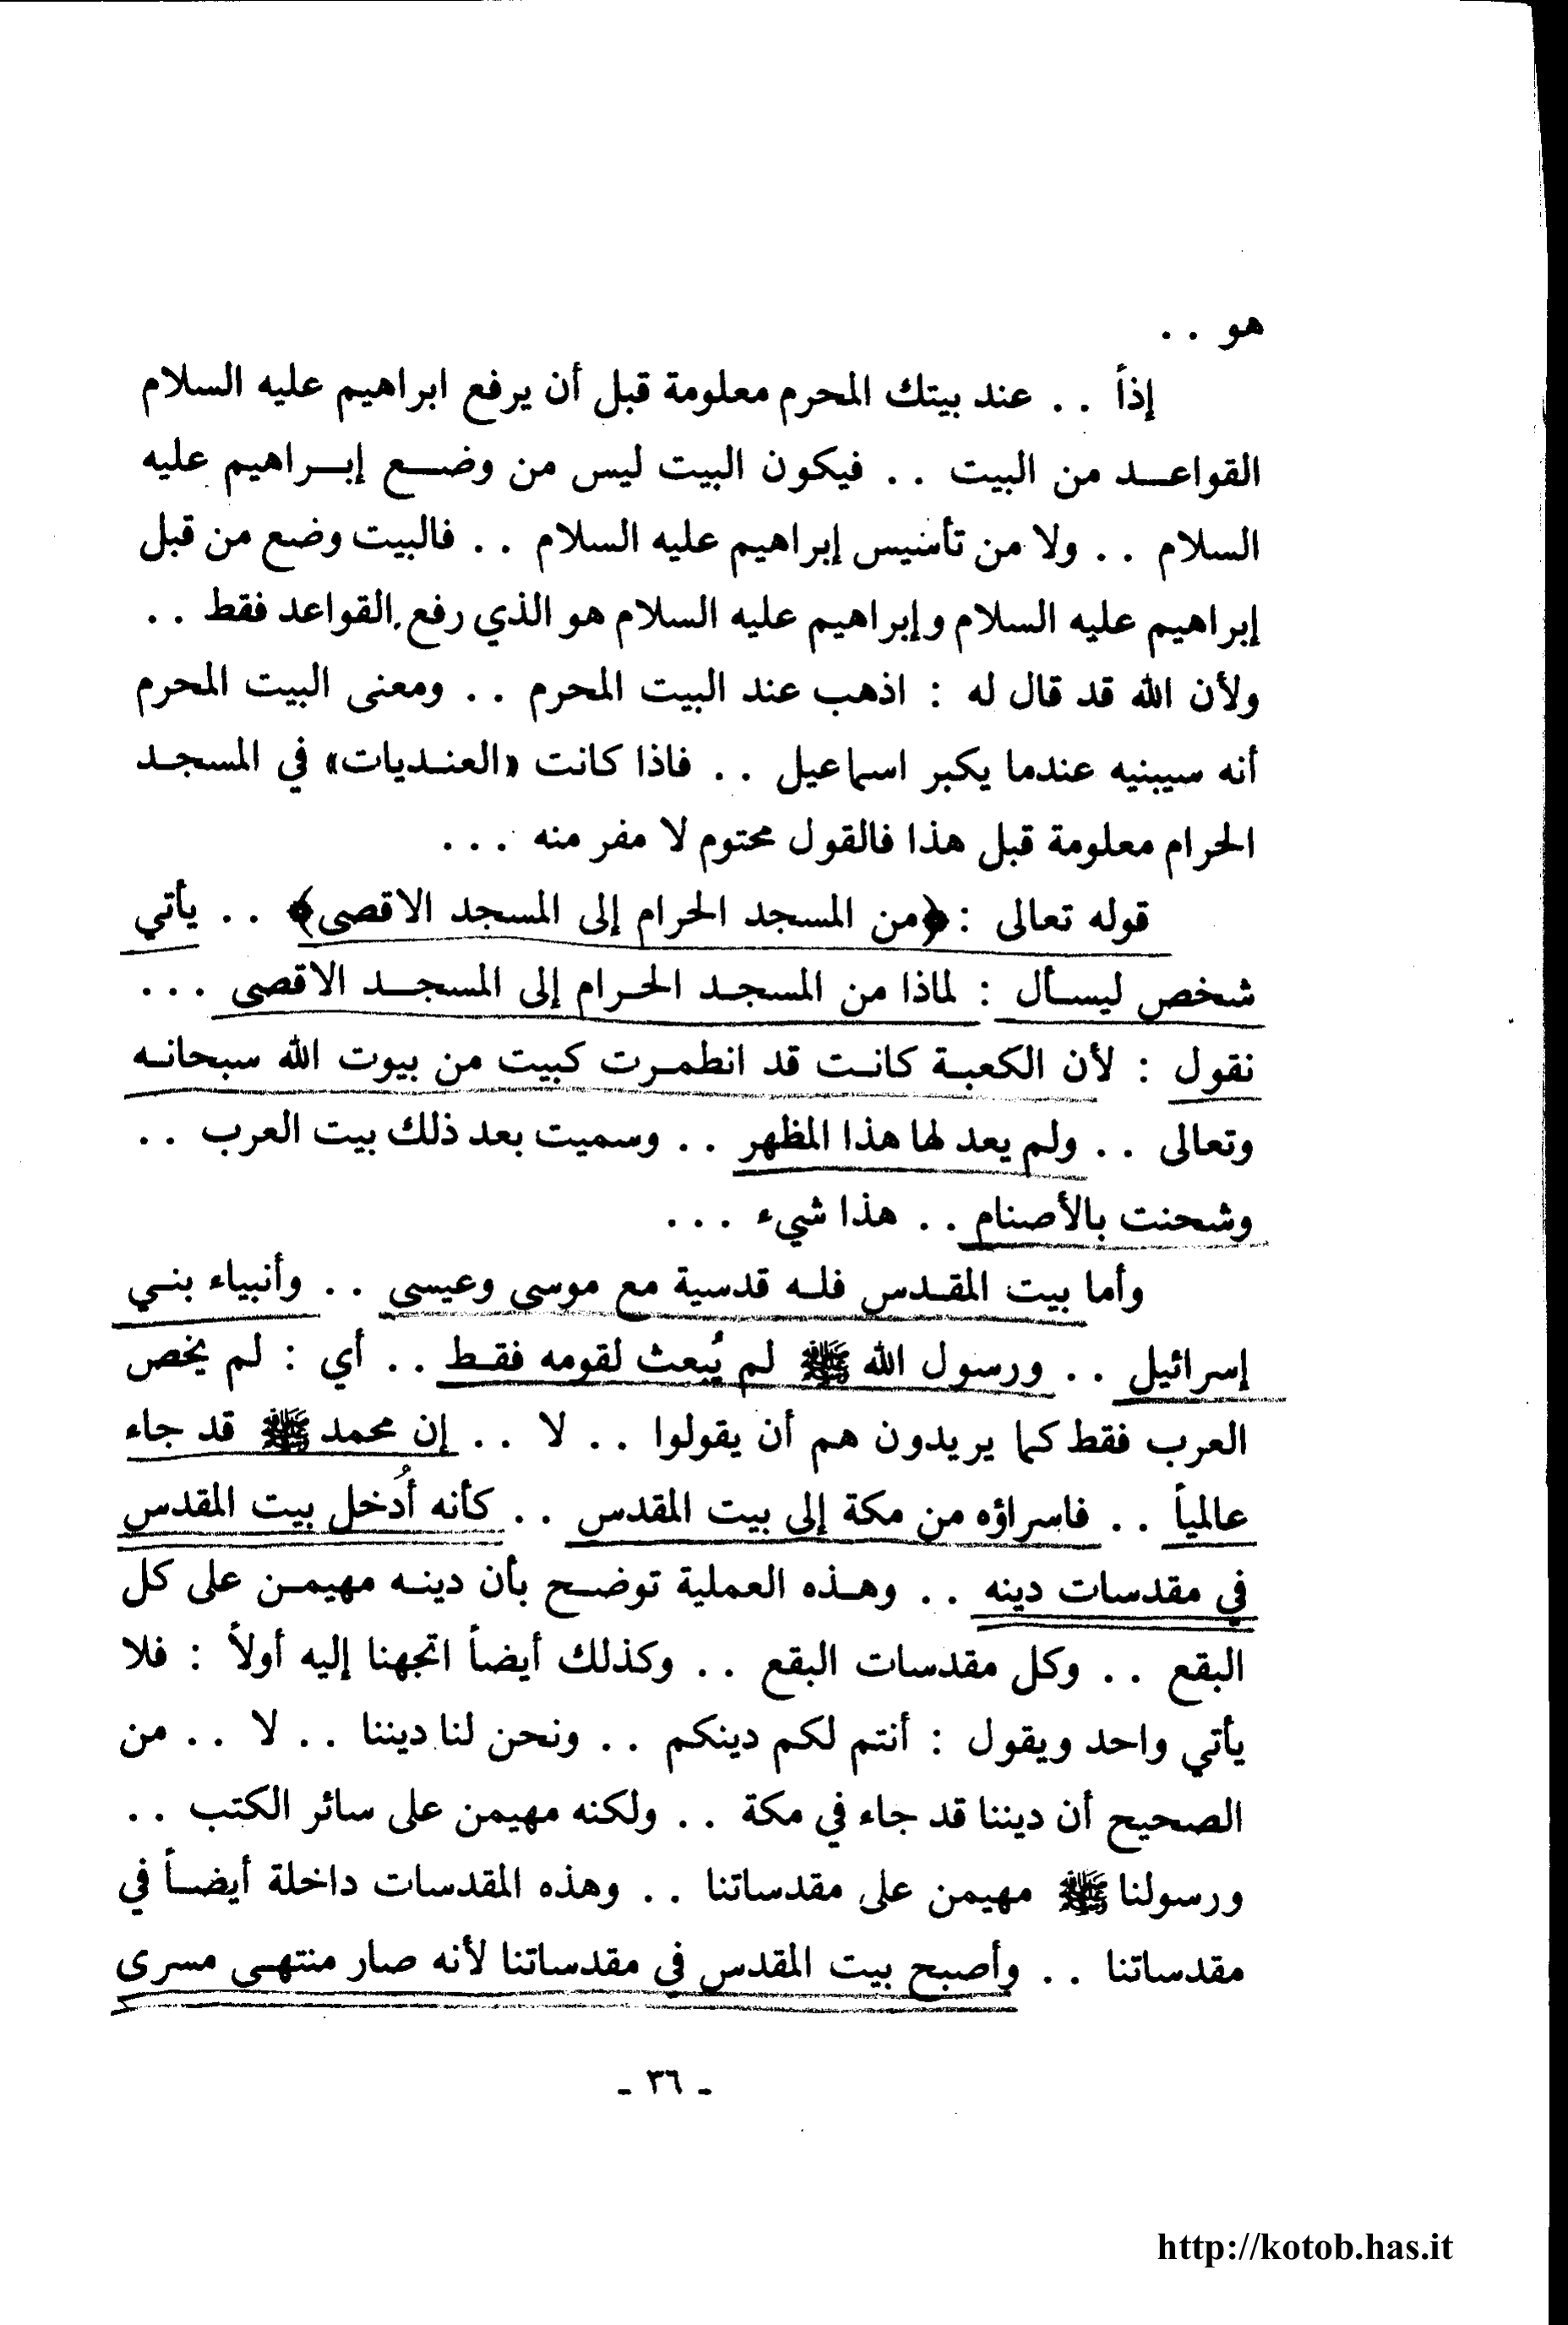 هو . .
إذاً . . عند بيتك المحرم معلومة قبل أن يرفع ابراهيم عليه السلام
القواعد من البيت . . فيكون البيت ليس من وضع إبراهيم عليه
السلام . . ولا من تأسيس إبراهيم عليه السلام . . فالبيت وضع من قبل
إبراهيم عليه السلام وإبراهيم عليه السلام هو الذي رفع القواعد فقط . .
ولأن الله قد قال له : اذهب عند البيت المحرم . . ومعنى البيت المحرم
أنه سيبنيه عندما يكبر اسماعيل . . فاذا كانت «العنديات» في المسجد
الحرام معلومة قبل هذا فالقول محتوم لا مفر منه . . .
قوله تعالى : ﴿من المسجد الحرام إلى المسجد الاقصى﴾ . . يأتي
شخص ليسأل : لماذا من المسجد الحرام إلى المسجد الاقصى . . .
نقول : لأن الكعبة كانت قد انطمرت كبيت من بيوت الله سبحانه
وتعالى . . ولم يعد لها هذا المظهر . . وسميت بعد ذلك بيت العرب . .
وشحنت بالأصنام . . هذا شيء . . .
وأما بيت المقدس فله قدسية مع موسى وعيسى . . وأنبياء بني
إسرائيل . . ورسول الله ﷺ لم يُبعث لقومه فقط . . أي : لم يخص
العرب فقط كما يريدون هم أن يقولوا . . لا . . إن محمد ﷺ قد جاء
عالمياً . . فاسراؤه من مكة إلى بيت المقدس . . كأنه أُدخل بيت المقدس
في مقدسات دينه . . وهذه العملية توضح بأن دينه مهيمن على كل
البقع . . وكل مقدسات البقع . . وكذلك أيضاً اتجهنا إليه أولاً : فلا
يأتي واحد ويقول : أنتم لكم دينكم . . ونحن لنا ديننا . . لا . . من
الصحيح أن ديننا قد جاء في مكة . . ولكنه مهيمن على سائر الكتب . .
ورسولنا ﷺ مهيمن على مقدساتنا . . وهذه المقدسات داخلة أيضاً في
مقدساتنا . . وأصبح بيت المقدس في مقدساتنا لأنه صار منتهى مسرى
ـ ٣٦ ـ
http://kotob.has.it